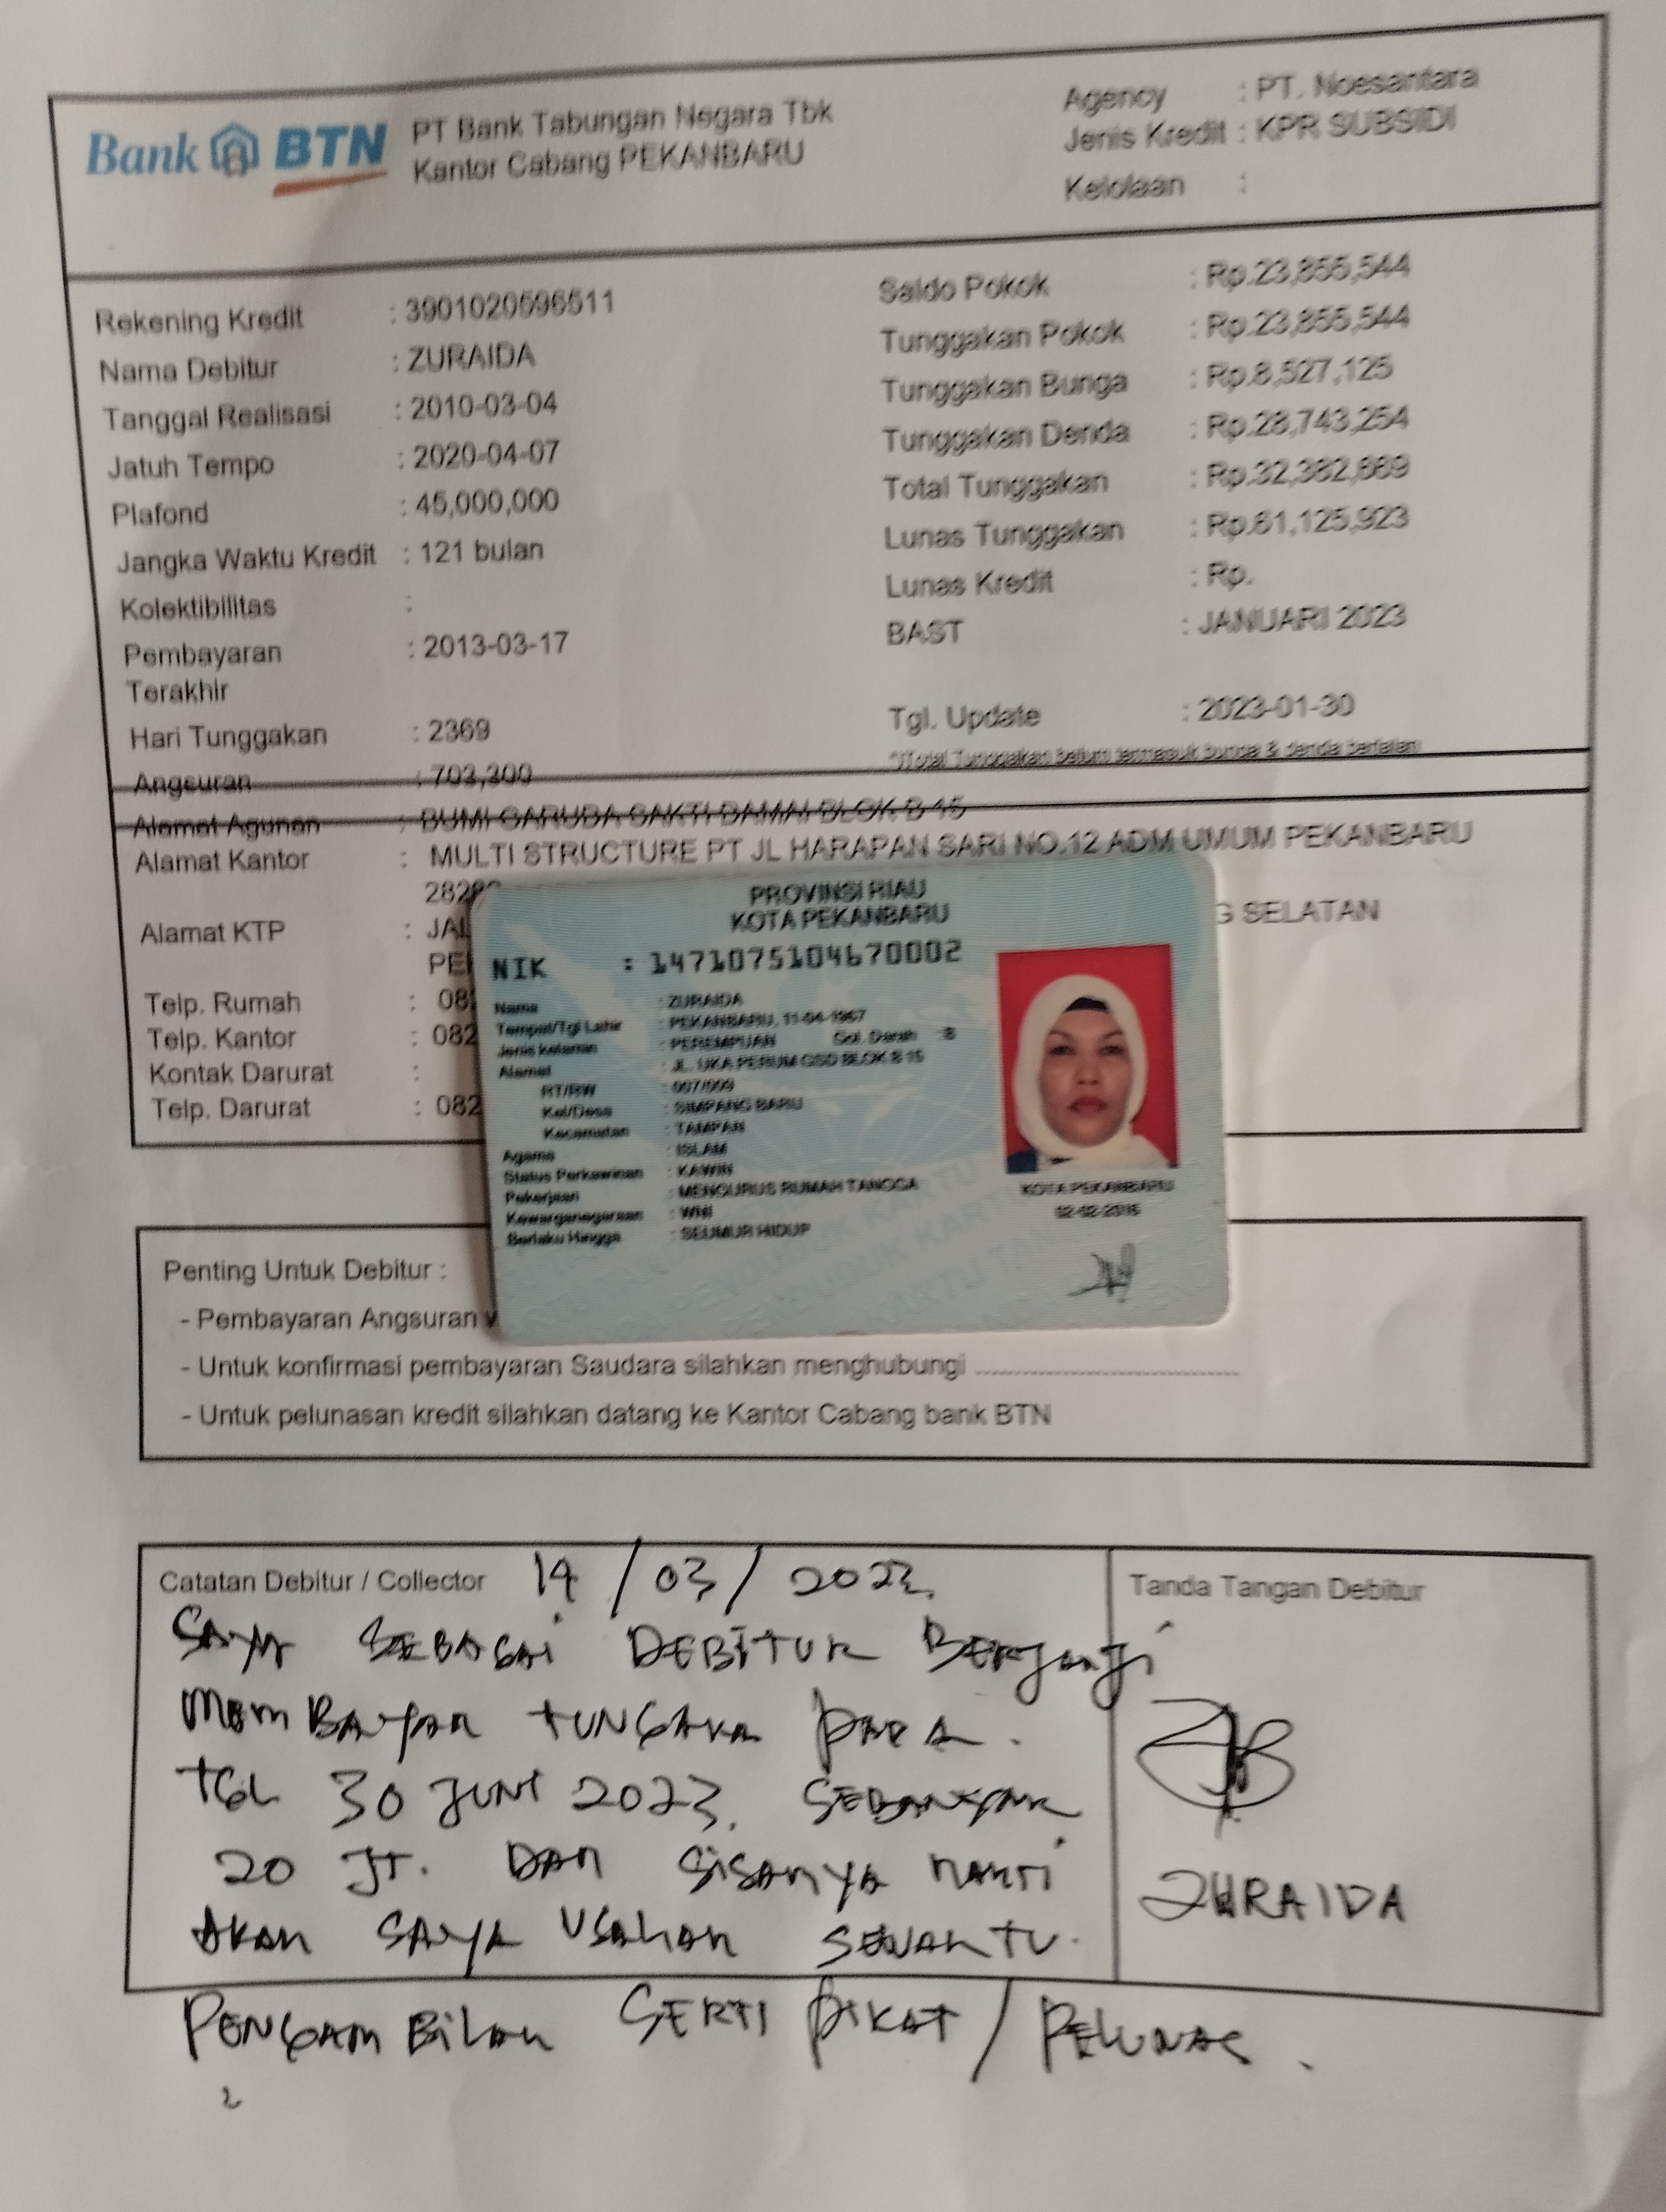 Bank BTN
PT Bank Tabungan Negara Tbk
Kantor Cabang PEKANBARU
Agency : PT. Noesantara
Jenis Kredit : KPR SUBSIDI
Kelolaan :
Rekening Kredit : 3901020596511
Nama Debitur : ZURAIDA
Tanggal Realisasi : 2010-03-04
Jatuh Tempo : 2020-04-07
Plafond : 45,000,000
Jangka Waktu Kredit : 121 bulan
Kolektibilitas :
Pembayaran : 2013-03-17
Terakhir
Hari Tunggakan : 2369
Angsuran : 703,300
Saldo Pokok : Rp.23,855,544
Tunggakan Pokok : Rp.23,855,544
Tunggakan Bunga : Rp.8,527,125
Tunggakan Denda : Rp.28,743,254
Total Tunggakan : Rp.32,382,669
Lunas Tunggakan : Rp.61,125,923
Lunas Kredit : Rp.
BAST : JANUARI 2023
Tgl. Update : 2023-01-30
*)Total Tunggakan belum termasuk bunga & denda berjalan
Alamat Agunan : BUMI GARUDA SAKTI DAMAI BLOK B 15
Alamat Kantor : MULTI STRUCTURE PT JL HARAPAN SARI NO.12 ADM UMUM PEKANBARU
2828
Alamat KTP : JAL G SELATAN
PE
Telp. Rumah : 08
Telp. Kantor : 082
Kontak Darurat :
Telp. Darurat : 082
PROVINSI RIAU
KOTA PEKANBARU
NIK : 1471075104670002
Nama : ZURAIDA
Tempat/Tgl Lahir : PEKANBARU, 11-04-1967
Jenis kelamin : PEREMPUAN Gol. Darah :B
Alamat : JL. UKA PERUM GSD BLOK B 15
RT/RW : 007/009
Kel/Desa : SIMPANG BARU
Kecamatan : TAMPAN
Agama : ISLAM
Status Perkawinan : KAWIN
Pekerjaan : MENGURUS RUMAH TANGGA
Kewarganegaraan : WNI
Berlaku Hingga : SEUMUR HIDUP
KOTA PEKANBARU
Penting Untuk Debitur :
- Pembayaran Angsuran
- Untuk konfirmasi pembayaran Saudara silahkan menghubungi ....................
- Untuk pelunasan kredit silahkan datang ke Kantor Cabang bank BTN
Catatan Debitur / Collector 14 / 03 / 2023.
SAYA SEBAGAI DEBITUR BERJANJI
MEMBAYAR TUNGAKA PADA.
TGL 30 JUNI 2023. SEBANYAK
20 JT. DAN SISANYA NANTI
AKAN SAYA USAHAN SEWAKTU.
PENGAMBILAN SERTIPIKAT / PELUNAS.
Tanda Tangan Debitur
ZURAIDA